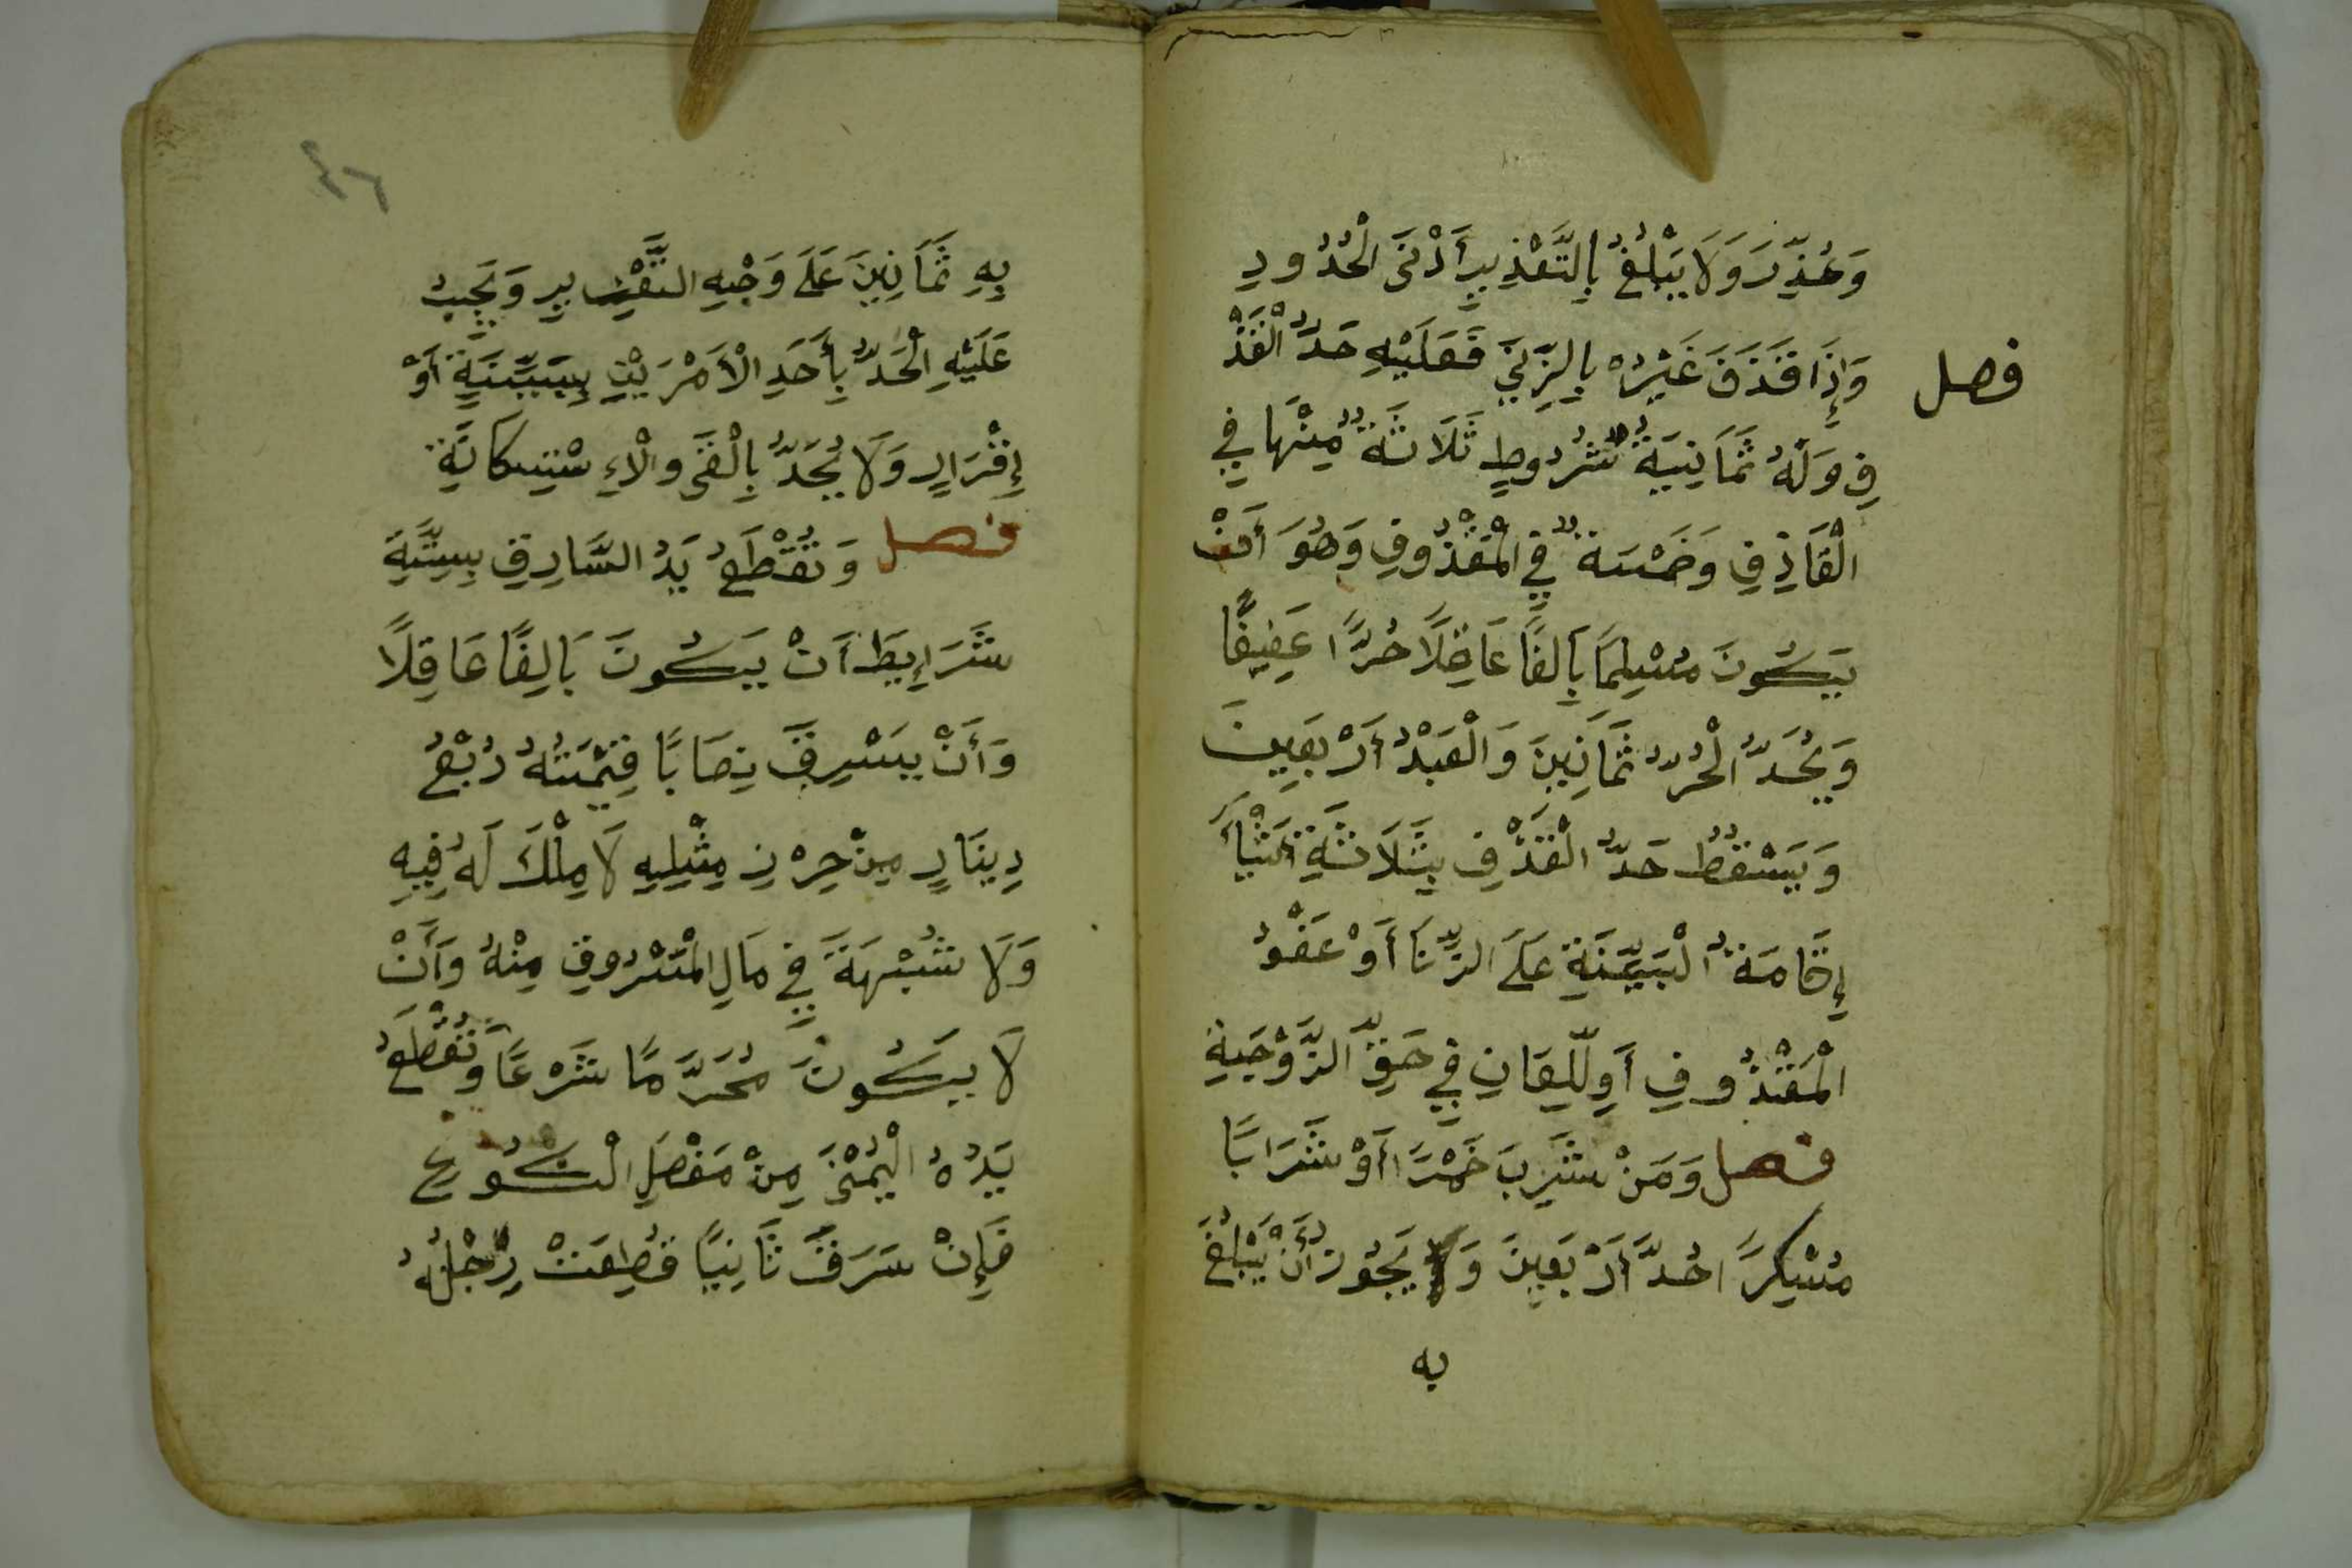 وَعُذِّرَ وَلَا يَبْلُغُ بِالتَّعْذِيرِ أَدْنَى الْحُدُودِ
فصل
وَإِذَا قَذَفَ غَيْرُهُ بِالزِّنَى فَعَلَيْهِ حَدُّ الْقَذْ
فِ وَلَهُ ثَمَانِيَةُ شُرُوطٍ ثَلَاثَةٌ مِنْهَا فِي
الْقَاذِفِ وَخَمْسَةٌ فِي الْمَقْذُوفِ وَهُوَ أَنْ
يَكُونَ مُسْلِمًا بَالِغًا عَاقِلًا حُرًّا عَفِيفًا
وَيُحَدُّ الْحُرُّ ثَمَانِينَ وَالْعَبْدُ أَرْبَعِينَ
وَيَسْقُطُ حَدُّ الْقَذْفِ بِثَلَاثَةِ أَشْيَأَ
إِقَامَةُ الْبَيِّنَةِ عَلَى الزِّنَا أَوْ عَفْوُ
الْمَقْذُوفِ أَوِ لِّلعَانِ فِي حَقِّ الزَّوْجَةِ
فصل وَمَنْ شَرِبَ خَمْرًا أَوْ شَرَابًا
مُسْكِرًا حُدَّ أَرْبَعِينَ وَ يَجُوزُ أَنْ يَبْلُغَ
به
٤٦
بِهِ ثَمَانِينَ عَلَى وَجْهِ التَّعْزِيرِ وَيَجِبُ
عَلَيْهِ الْحَدُّ بِأَحَدِ الْأَمْرَيْنِ بِبَيِّنَةٍ أَوْ
إِقْرَارٍ وَلَا يُحَدُّ بِالْقَى وَالْاءِسْتِسكَانَةِ
فصل وَتُقْطَعُ يَدُ السَّارِقِ بِسِتَّةِ
شَرَايِطَ أَنْ يَكُونَ بَالِغًا عَاقِلًا
وَأَنْ يَسْرِقَ نِصَابًا قِيْمَتُهُ رُبْعُ
دِينَارٍ مِنْ حِرْزِ مِثْلِهِ لَا مِلْكَ لَهُ فِيهِ
وَلَا شُبْهَةَ فِي مَالِ الْمَسْرُوقِ مِنْهُ وَأَنْ
لَا يَكُونَ مُحَرَّمًا شَرْعًا وَتُقْطَعُ
يَدُهُ الْيُمْنَى مِنْ مَفْصَلِ الْكُوعِ
فَإِنْ سَرَقَ ثَانِيًا قُطِعَتْ رِجْلُهُ